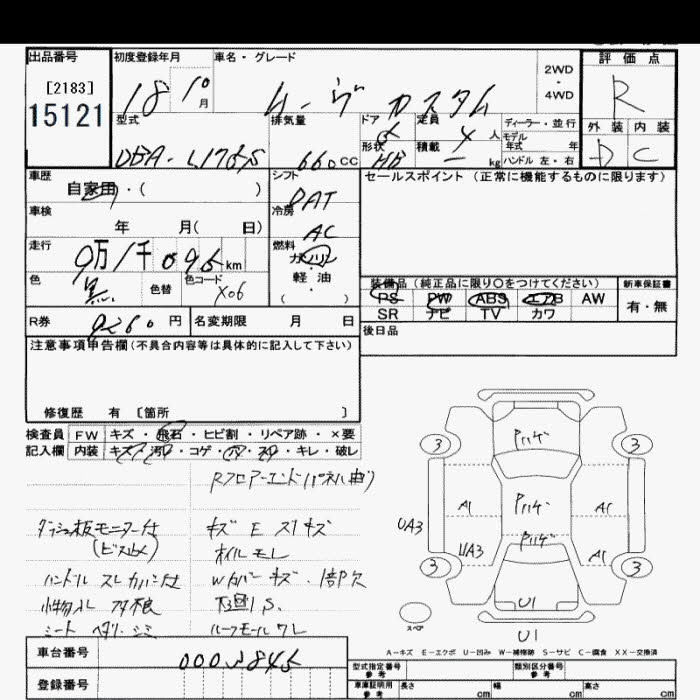 出品番号
[2183]
15121
初度登録年月
18 10 月
車名・グレード
ムーヴ カスタム
2WD
・
4WD
評価点
R
外装 内装
D C
型式
DBA-L175S
排気量
660 CC
ドア 5
形状 HB
定員 4 人
積載 － kg
ディーラー・並行
モデル
年式 年
ハンドル 左・右
車歴
自家用・( )
シフト
DAT
車検
年 月( 日)
冷房
AC
走行
9万1千095km
燃料
ガソリン
軽・油
( ・ )
色
黒
色替
色コード
X06
R券 9260 円
名変期限 月 日
セールスポイント (正常に機能するものに限ります)
装備品 (純正品に限り〇をつけてください)
PS PW ABS エアB AW
SR ナビ TV カワ
新車保証書
有・無
後日品
注意事項申告欄(不具合内容等は具体的に記入して下さい)
修復歴 有 〔箇所 〕
検査員
記入欄
FW キズ・飛石・ヒビ割・リペア跡・×要
内装 キズ・汚れ・コゲ・穴・スレ・キレ・破レ
Rフロアーエンドパネル曲り
ダッシュ板モニター付
(ビス止メ)
ハンドル スレ カバー付
小物入レ
シート ヘタリ・シミ
キズ E スリキズ
オイルモレ
Wカバーキズ・1部欠
下廻 S.
ルーフモールワレ
3 3
3 3
Pハゲ
Pハゲ
Pハゲ
A1 A1
UA3
UA3 A1
U1
U1
スペア
A－キズ E－エクボ U－凹み W－補修跡 S－サビ C－腐食 XX－交換済
車台番号
0002845
登録番号
型式指定番号
参考
類別区分番号
参考
車庫証明用
参考
長さ cm 幅 cm 高さ cm